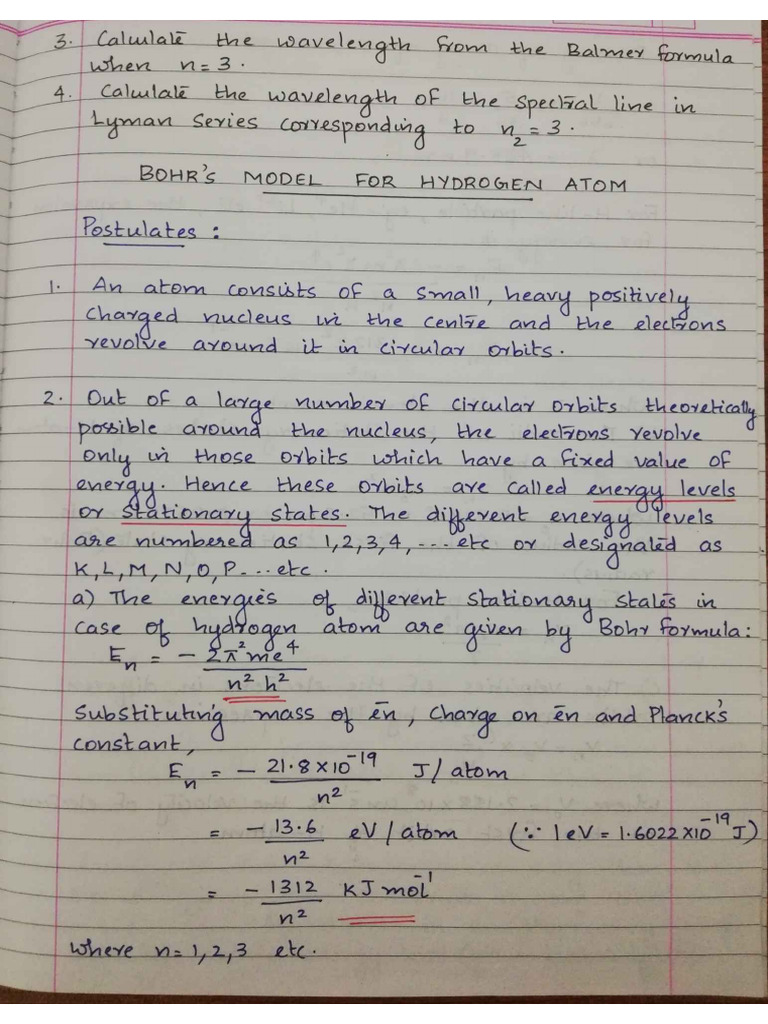 3. Calculate the wavelength from the Balmer formula
when n = 3.
4. Calculate the wavelength of the spectral line in
Lyman Series corresponding to n₂ = 3.
BOHR'S MODEL FOR HYDROGEN ATOM
Postulates :
1. An atom consists of a small, heavy positively
charged nucleus in the centre and the electrons
revolve around it in circular orbits.
2. Out of a large number of circular orbits theoretically
possible around the nucleus, the electrons revolve
only in those orbits which have a fixed value of
energy. Hence these orbits are called energy levels
or stationary states. The different energy levels
are numbered as 1,2,3,4, ....etc or designated as
K,L,M,N,O,P....etc.
a) The energies of different stationary states in
case of hydrogen atom are given by Bohr formula:
Eₙ = - 2π²me⁴ / n²h²
Substituting mass of ēn, charge on ēn and Planck's
constant,
Eₙ = - 21.8×10⁻¹⁹ / n² J/atom
= - 13.6 / n² eV/atom (∵ 1eV = 1.6022×10⁻¹⁹ J)
= - 1312 / n² KJ mol⁻¹
where n= 1,2,3 etc.